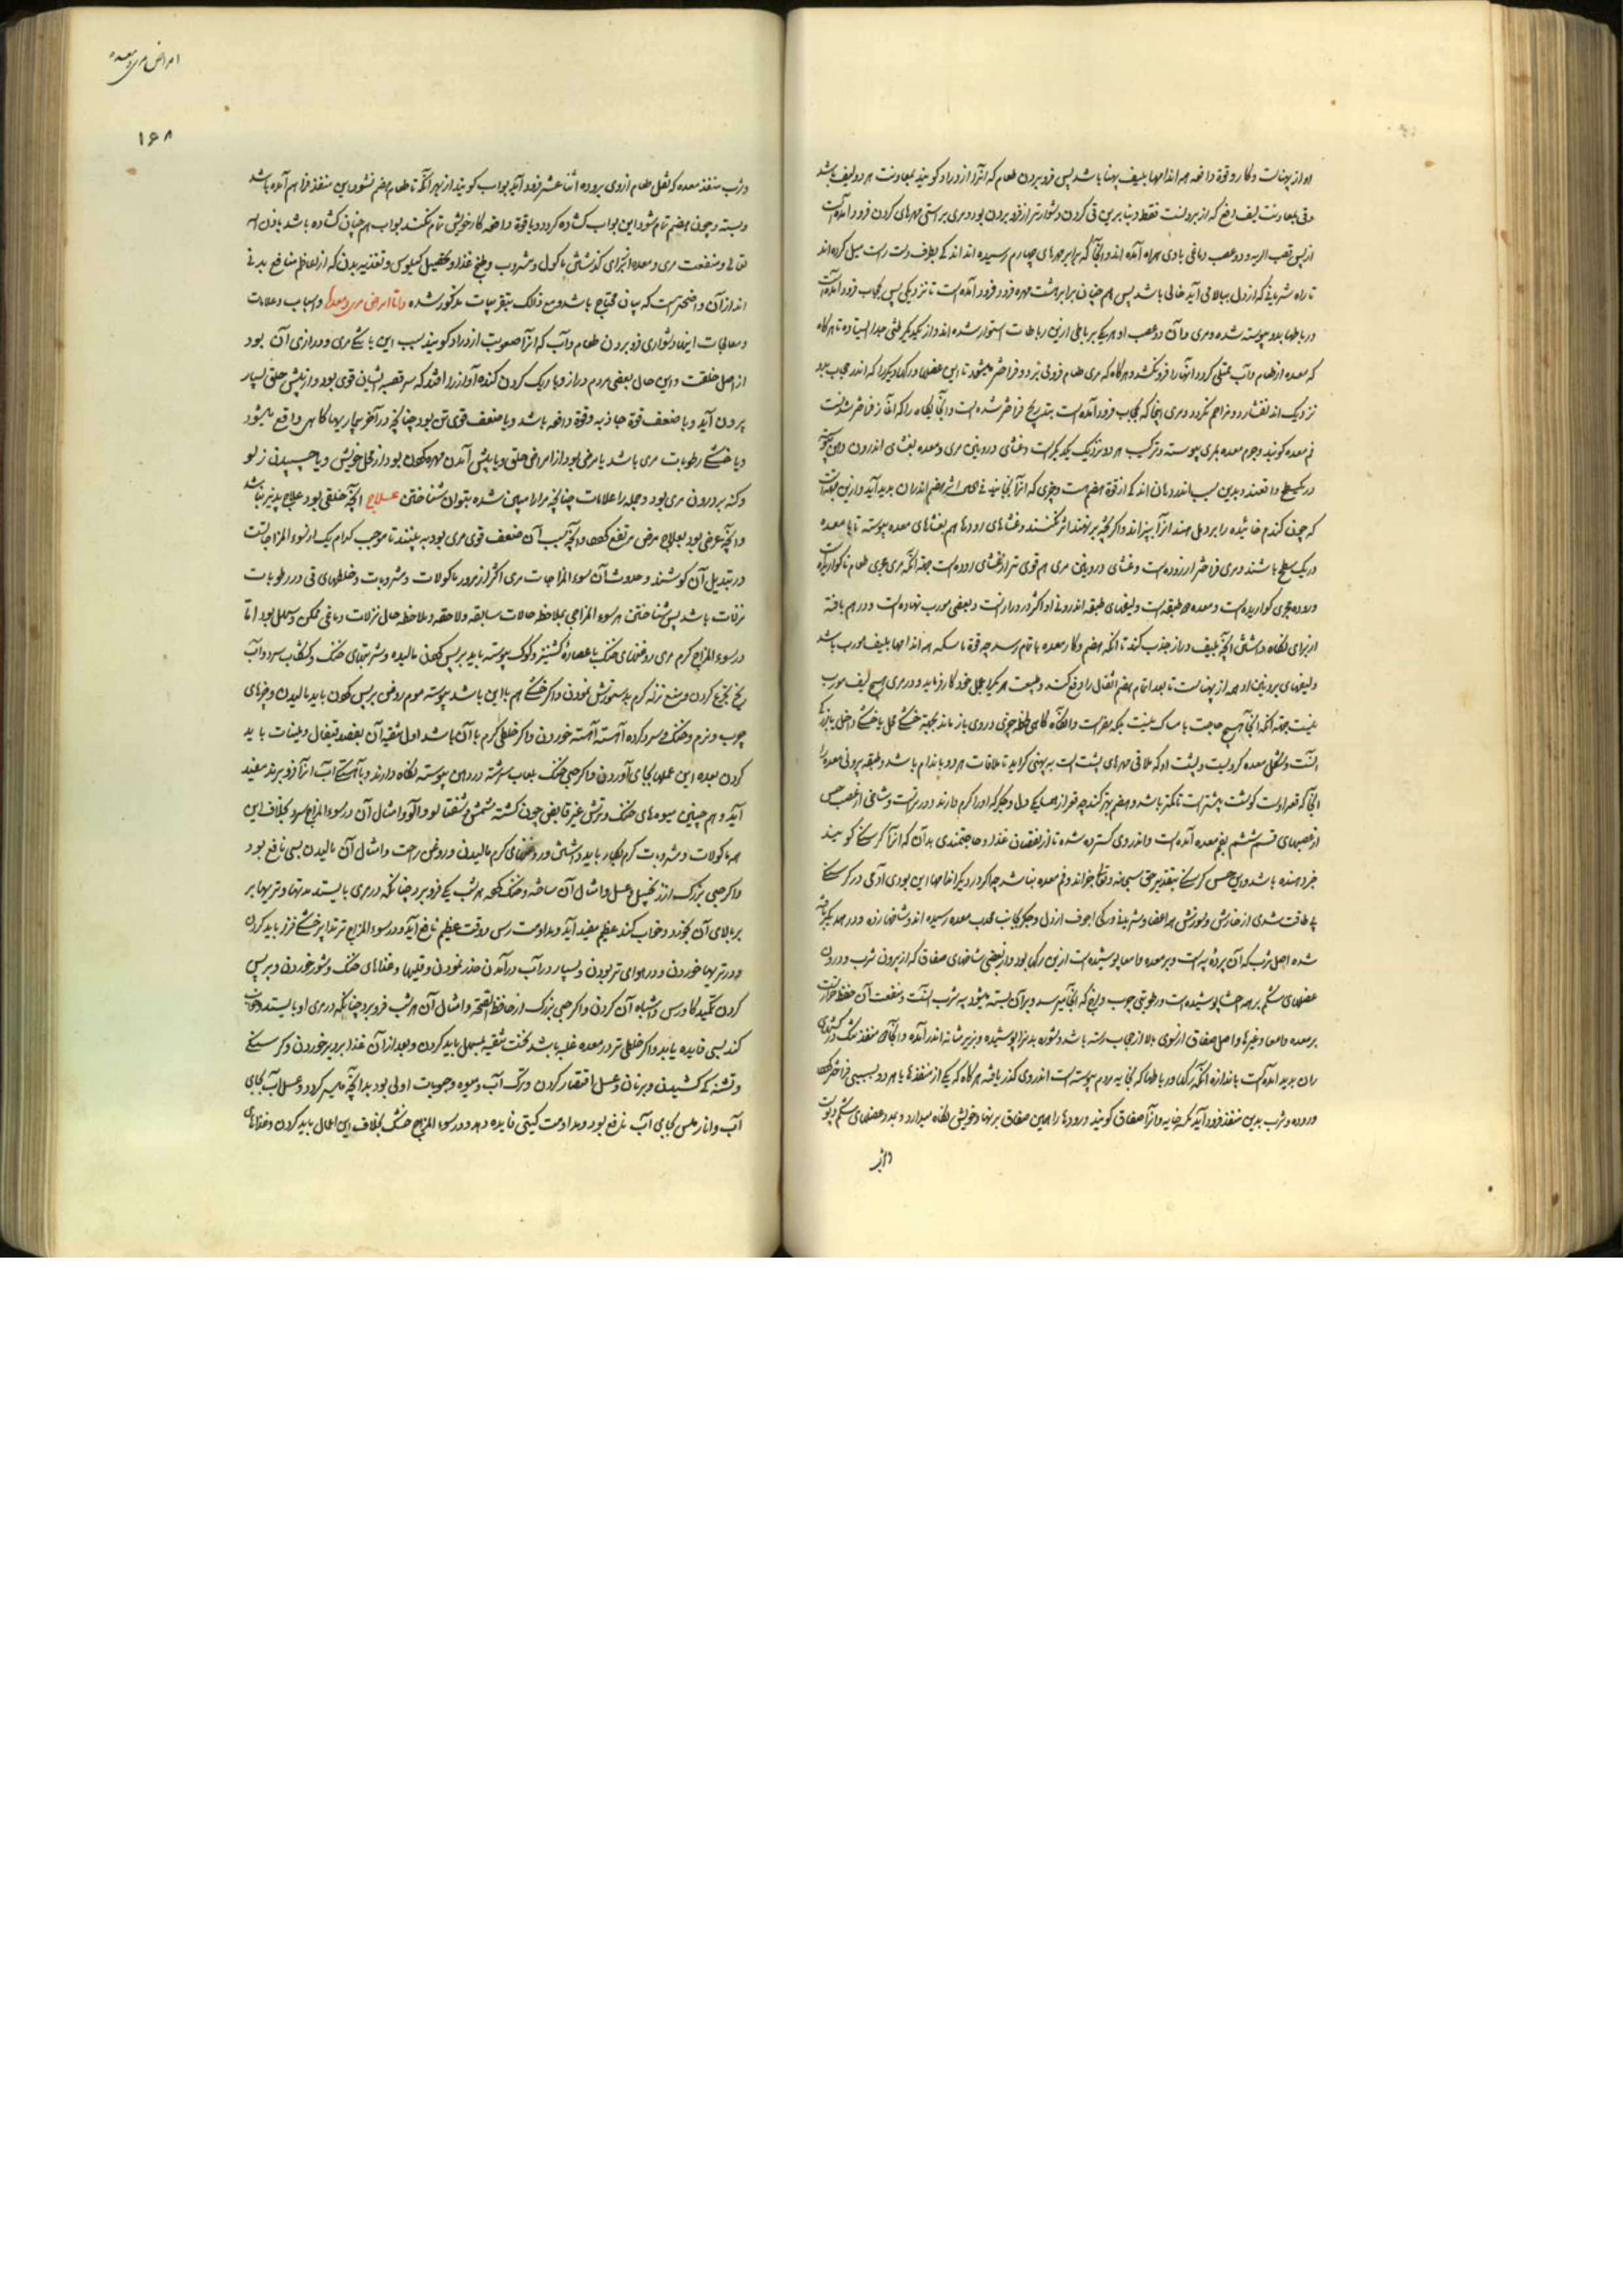 او از پهناست و کار و قوة دافعه همه اندامها بلیف پهنا باشد پس فروبردن طعام که انرا ازدراد کویند بمعاونت هر دو لیف باشد
وقی بمعاونت لیف دفع که از برونست فقط و بنا برین قی کردن دشوارتر از فروبردن بود و مری بر استی مهرهای کردن فرود آمده است
از پس قصب الریه و دو عصب دماغی با وی همراه آمده اند و آنجا که برابر مهرهای چهارم رسیده اند اندکی بطرف دست راست میل کرده اند
تا راه شریانی که از دل ببالا می آید خالی باشد پس هم چنان برابر هشت مهره فرود فرود آمده است تا نزدیکی پس بحجاب فرود آمده است
در باطها بدو پیوسته شده و مری و آن دو عصب او هر یک بر باطی ازین رباطات استوار شده اند و از یکدیگر جدا ایستاده تا هرکاه
که معده از طعام و آب ممتلی کردد آنها را فرو نکشد و هرکاه که مری طعام فرو می برد و فراختر میشود تا این عضلها و رکها دیکر را که اندر حجاب بود
نزدیک اند نفشارد و مزاحم نکردد و مری اینجا که بحجاب فرود آمده است بتدریج فراختر شده است و آنجایکاه را که آغاز فراختر شدنست
فم معده کویند و جرم معده بمری پیوسته و ترکیب هر دو نزدیک یکدیکر است و غشای درونین مری و معده بغشای اندرون دهن پیوسته
در یک سطح واقعند و بدین سبب اندر دهان اندکی از قوة هضم هست و چیزی که انرا بخایند فی الحال اثر هضم اندران پدید آید و ازین جهتست
که چون کندم خائیده را بر دمل نهند انرا بپزاند و اکر پخته بر نهند اثر نکند و غشای رودها هم بغشای معده پیوسته تا با معده
در یک سطح باشند و مری فراختر از روده است و غشای درونین مری هم قوی تر از غشای روده است جهة انکه مری مجری طعام ناکواریده است
و روده مجری کواریده است و معده دو طبقه است و لیفهای طبقه اندرونی او اکثر در درازاست و بعضی مورب نهاده است و در هم بافته
از برای نکاه داشتن آنچه بلیف دراز جذب کند تا انکه هضم و کار معده باتمام رسد چه قوة ماسکه همه اندامها بلیف مورب باشد
و لیفهای برونین او همه از پهناست تا بعد اتمام هضم اثقال را دفع کند و طبیعت هر یک را بمحل خود کار فرماید و در مری هیچ لیف مورب
نیست جهة انکه آنجا هیچ حاجت بامساک نیست
النست و شکل معده کرد لیست و پشت او که ملاقی مهرهای پشت است به پهنی کراید تا ملاقات هر دو باندام باشد و طبقه برونی معده را
آنجا که قعر اوست کوشت بیشتر است تا کرمتر باشد و هضم بهتر کند چه قعر از همسایکی دل و جکر که او را کرم دارند دورترست و شاخی از عصب حس
از عصبهای قسم ششم بفم معده آمده است و اندر وی کسترده شده تا از نقصان غذا و حاجتمندی بدان که انرا کرسنکی کویند
خبر دهنده باشد و این حس کرسنکی بتقدیر حق سبحانه و تعالی جز اندر فم معده نباشد چه اکر در دیکر اندامها این بودی آدمی در کرسنکی
بی طاقت شدی از خارش و سوزش همه اعضا و شریانی و رکی اجوف از دل و جکر بجانب محدب معده رسیده اند و شاخها زده و در هم دیکر بافته
شده اصل ثرب که آن پرده پیه است و بر معده و امعا پوشیده است ازین رکها بود و از بعضی شاخهای صفاق که از برون ثرب و درون
عضلهای شکم بر همه احشا پوشیده است و رطوبتی چرب و لزج که آنجا میرسد و بر آن بسته میشود پیه ثرب النست و منفعت آن حفظ حرارت
بر معده و امعا و غیرها و اصل صفاق از سوی بالا از حجاب رسته باشد
ران پدید آمده است باندازه انکه رکها و رباطها که بخایه مردم پیوسته است اندر وی کذر یافته هرکاه که یکی از منفذها یا هر دو بسببی فراختر شود
و روده و ثرب بدین منفذ فرود آید بکیسه خایه و انرا فتق کویند و رودها را همین صفاق بر نهاد خویش نکاه میدارد و بمدد عضلهای شکم و پوست
و ثرب
امراض مری و معده
۱۶۸
و ثرب منفذ معده که ثفل طعام از وی بروده اثنا عشر فرود آید بواب کویند از بهر انکه تا طعام هضم نشود این منفذ فراهم آمده باشد
و بسته و چون هضم تمام شود این بواب کشاده کردد و تا قوة دافعه کار خویش تمام نکند بواب هم چنان کشاده باشد باذن الله
تعالی و منفعت مری و معده از برای کذشتن ماکول و مشروب و طبخ غذا و تحصیل کیلوس و تغذیه بدن که از اعاظم منافع بدنی
اند از آن واضحترست که به بیان محتاج باشد و مع ذالک بتقریبات مذکور شده و اما امراض مری و معده و اسباب و علامات
و معالجات اینها دشواری فروبردن طعام و آب که انرا صعوبت ازدراد کویند سبب این یا تنکی مری و درازی آن بود
از اصل خلقت و این حال بعضی مردم دراز و باریک کردن کنده آواز را افتد که سر قصبه ایشان قوی بود و از پیش حلق بسیار
برون آید و یا ضعف قوة جاذبه و قوة دافعه باشد و یا ضعف قوی تن بود چنانچه در آخر بیماریها کاهی واقع میشود
و یا خشکی رطوبات مری باشد یا مرضی بود از امراض حلق و یا پیش آمدن مهره کردن بود از محل خویش و یا چسپیدن زلو
و کنه بر درون مری بود و جمله را علامات چنانچه مرارا مبین شده بتوان شناختن علاج آنچه خلقی بود علاج پذیر نباشد
و آنچه مرضی بود بعلاج مرض مرتفع کردد و آنچه سبب آن ضعف قوی مری بود به بینند تا موجب کدام یک از سوء المزاجاتست
در تبدیل آن کوشند و حدوث آن سوء المزاجات مری اکثر از مرور ماکولات و مشروبات و خلطهای قی و رطوبات
نزلات باشد پس شناختن هر سوء المزاجی بملاحظه حالات سابقه و لاحقه و ملاحظه حال نزلات دماغی ممکن و سهل بود اما
در سوء المزاج کرم مری روغنهای خنک با عصارهٔ کشنیز و کوک پیوسته باید بر پس کردن مالیده و شربتهای خنک و کشکاب سرد و آب
یخ تجرع کردن و منع نزله کرم بدستورش نمودن و اکر خشکی هم با این باشد پیوسته موم روغن بر پس کردن باید مالیدن و چیزهای
چرب و نرم و خنک و سرد کرده آهسته آهسته خوردن و اکر خلطی کرم با آن باشد اول تنقیه آن بفصد قیفال و ملینات باید
کردن بعده این عملها بجای آوردن و اکر حبی خنک بلعاب سرشته در دهن پیوسته نکاه دارند و بآهستکی آب انرا فرو برند مفید
آید و هم چنین میوه های خنک و ترش غیر قابض چون کشته مشمش و شفتالو و آلو و امثال آن در سوء المزاج سرد بخلاف این
همه ماکولات و مشروبات کرم بکار باید داشتن و روغنهای کرم مالیدن و روغن راحت و امثال آن مالیدن بسی نافع بود
و اکر حبی بزرک از زنجبیل و عسل و امثال آن ساخته و خنک کرده هر شب یکی فرو برد چنانکه در مری بایستد مدتها و تریها بر
بر بالای آن نخورد و خواب کند عظیم مفید آید و مداومت رس دو وقت عظیم نافع آید و در سوء المزاج تر تدابیر خشکی فزا باید کردن
و در تریها خوردن و در هوای تر بودن و بسیار در آب درآمدن حذر نمودن و قلیها و غذاهای خنک و شور خوردن و بر پس
کردن تکمید کاورس و اشباه آن کردن و اکر حبی بزرک از حافظ الصحة و امثال آن هر شب فرو برد چنانکه در مری او بایستد و خواب
کند بسی فایده یابد و اکر خلطی تر در معده غلبه باشد نخست تنقیه بمسهل باید کردن و بعد از آن غذا بر دیر خوردن و کرسنکی
و تشنکی کشیدن و بر نان و عسل اقتصار کردن و ترک آب و میوه و حبوبات اولی بود بدانچه میسر کردد و عسل آب بجای
آب و انار ملس بجای آب نافع بود و مداومت کیتی فایده دهد و در سوء المزاج خشک بخلاف این اعمال باید کردن و غذاهای